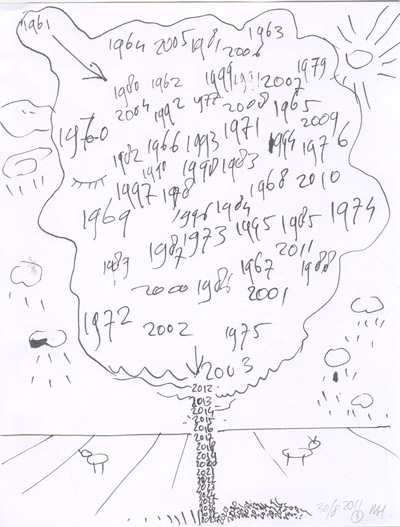 1961
1964 2005 1981 2006 1963
1980 1962 1999 1991 2007 1979
2004 1992 1977 2008 1965
2009
1970 1966 1993 1971 1994 1976
1982 1990 1983
1997 1978 1968 2010
1969 1996 1984 1974
1987 1973 1995 1985
1989 2011
1967 1988
2000 1986 2001
1972 2002 1975
2003
2012
2013
2014
2015
2016
2017
2018
2019
2020
2021
2022
2023
30/8 2011